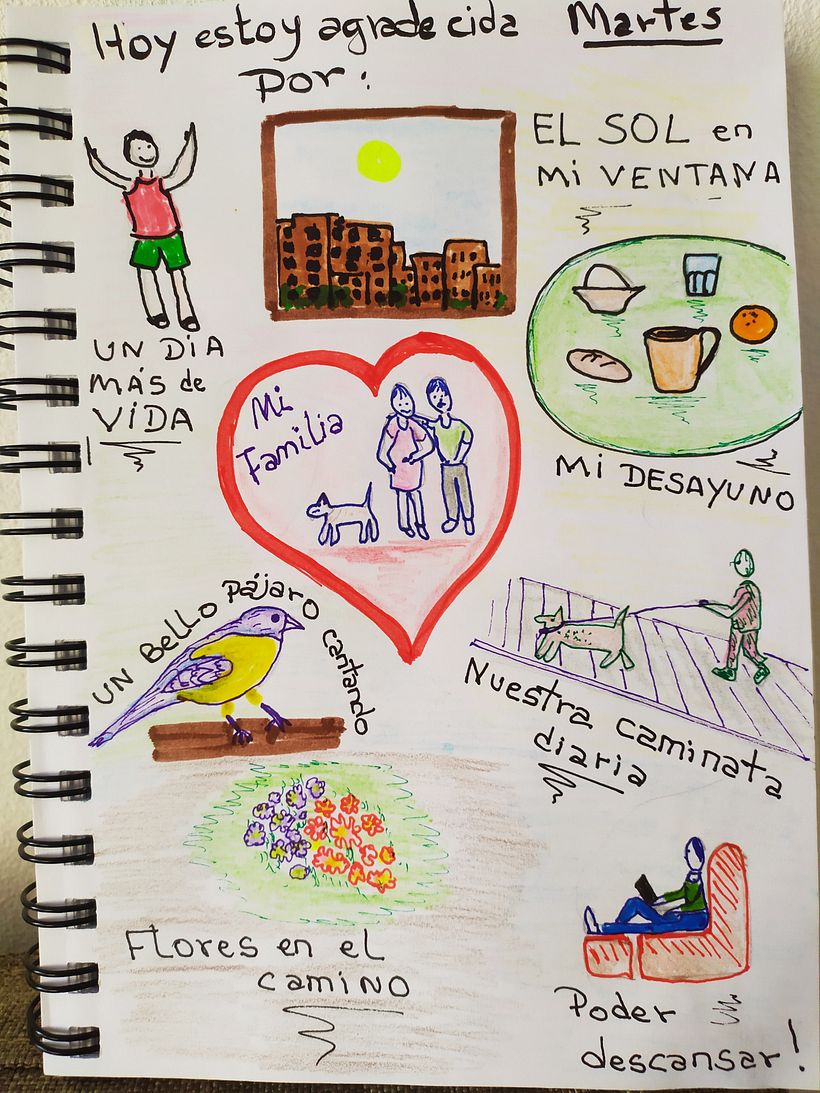 Hoy estoy agradecida Martes
por:
EL SOL en
Mi VENTANA
UN DIA
MÁS de
VIDA
Mi
Familia
Mi DESAYUNO
UN BELLO pájaro cantando
Nuestra caminata
diaria
Flores en el
camino
Poder
descansar!